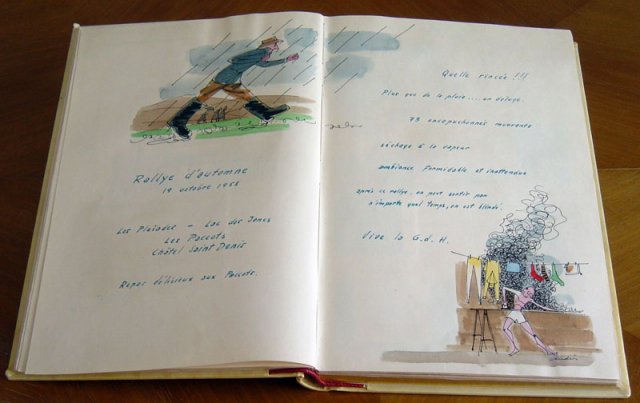 Rallye d'automne
19 octobre 1958
Les Pleiades - Lac des Joncs
Les Paccots
Châtel Saint Denis
Repas délicieux aux Paccots.
Quelle rincée !!!
Plus que de la pluie..... un déluge.
73 encapuchonnés mouvants
séchage à la vapeur
ambiance formidable et inattendue
après ce rallye, on peut sortir par
n'importe quel temps, on est blindé.
Vive la G.d.H.